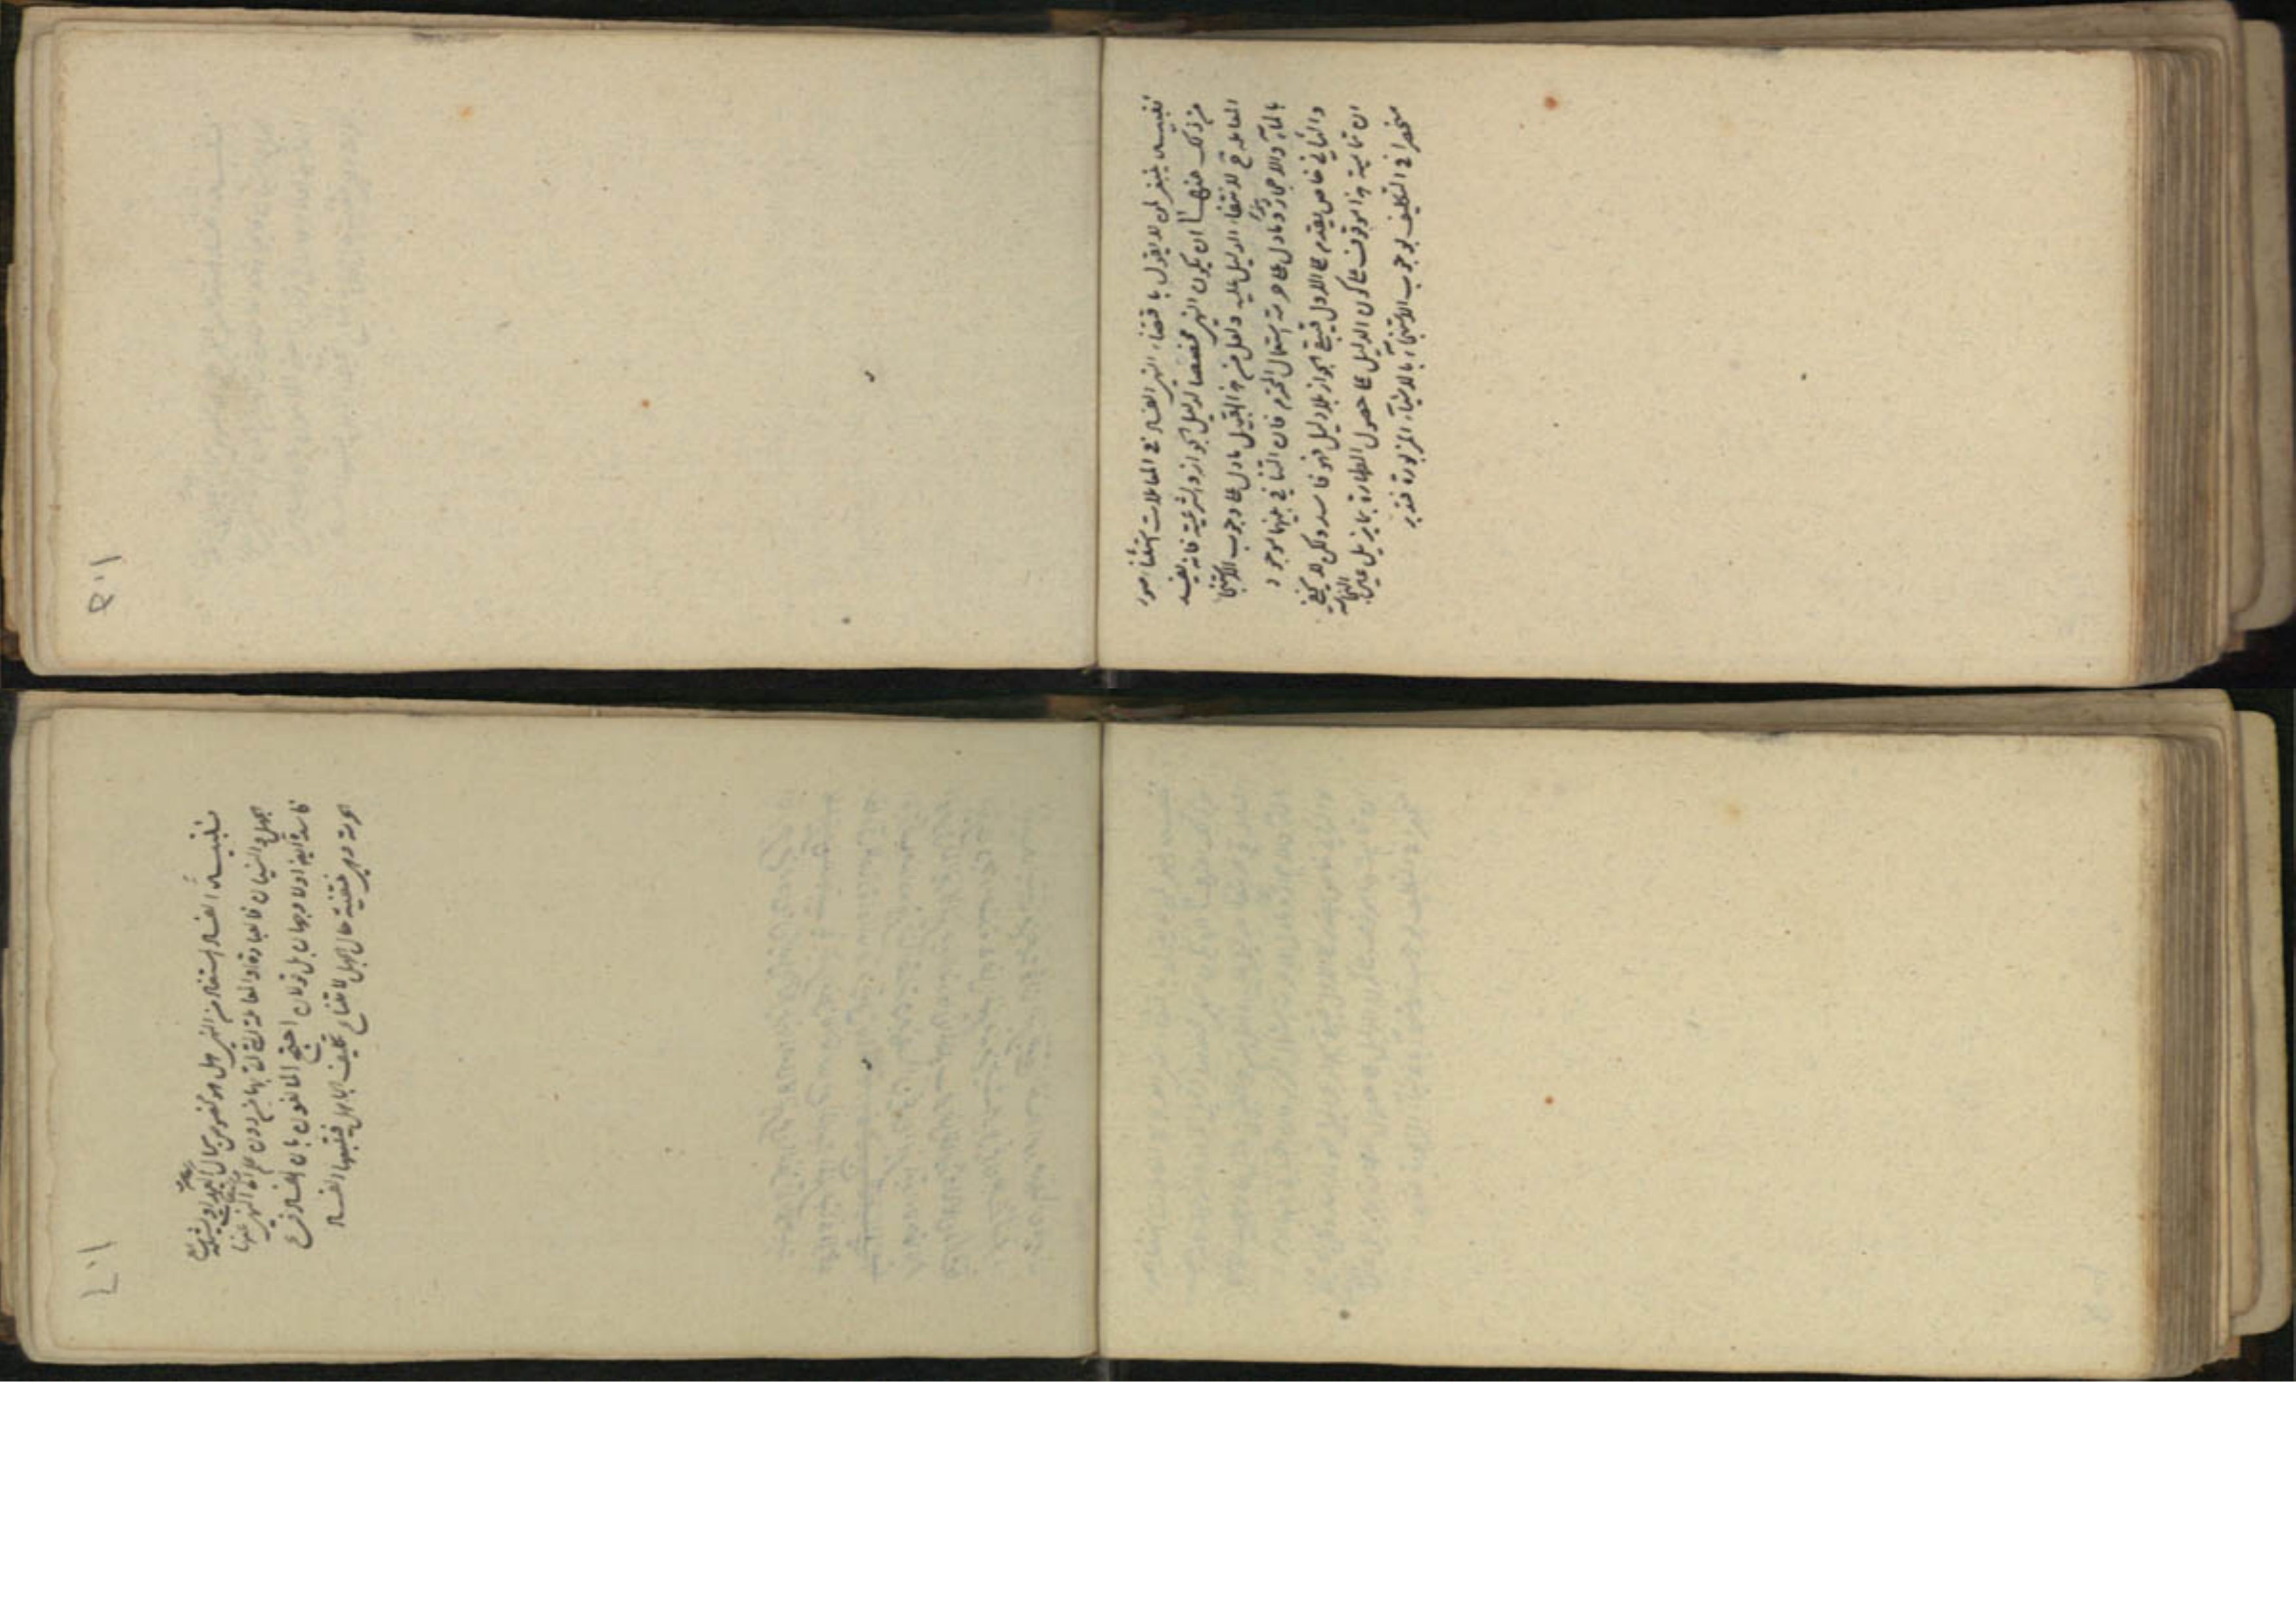 تنبيه ينبغي لمن لا يقول باقتضاء النهي الفساد في المعاملات استثناء صور
من ذلك منها ان يكون النهي مخصصا لدليل الجواز والشرعية فانه يفيد
المعاملة لانتفاء الدليل عليه ولعل من هذا القبيل ما دل على وجوب الاستنجاء
بالماء والاحجار وما دل على حرمة استعمال المحترم فان التنافي بينهما موجود
والثاني خاص يقدم على الاول فيبقى الجواز بلا دليل فهو فاسد ولكن لا يخفى
ان تمامية هذا موقوف على كون الدليل على حصول الطهارة بما يزيل عين النجاسة
منحصرا في التكليف بوجوب الاستنجاء بالاشياء المزبورة فتدبر
١٠٥
تنبيه الفساد المستفاد من النهي هل هو مخصوص بحال العمد او يشمل
الجهل والنسيان فالعبادة او المعاملة التي اتى بها من دون علم انه النهي عنها
فاسدة ايضا او لا وجهان بل قولان احتج المانعون بان الفساد فرع
الحرمة وهي منتفية حال الجهل لامتناع تكليف الجاهل فينتفي الفساد
١٠٦